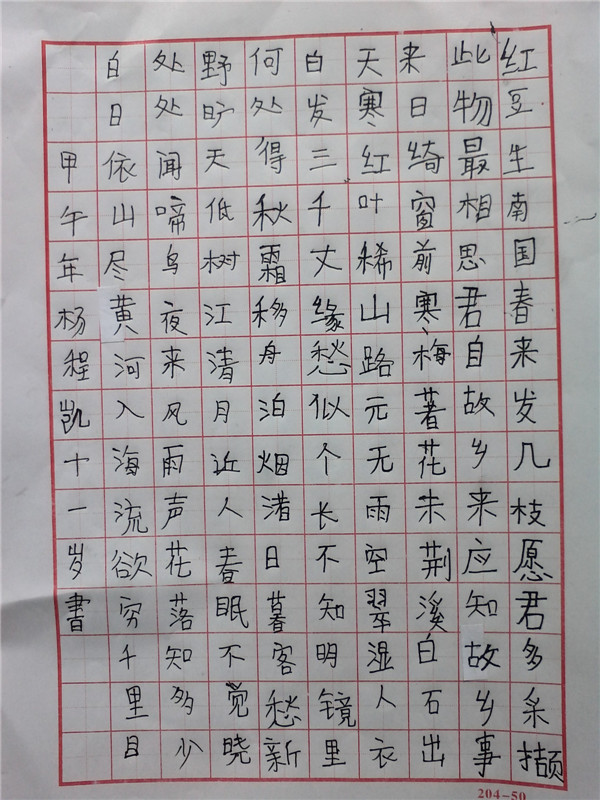 红豆生南国春来发几枝愿君多采撷
此物最相思君自故乡来应知故乡事
来日绮窗前寒梅著花未荆溪白石出
天寒红叶稀山路元无雨空翠湿人衣
白发三千丈缘愁似个长不知明镜里
何处得秋霜移舟泊烟渚日暮客愁新
野旷天低树江清月近人春眠不觉晓
处处闻啼鸟夜来风雨声花落知多少
白日依山尽黄河入海流欲穷千里目
甲午年杨程凯十一岁書
204-50